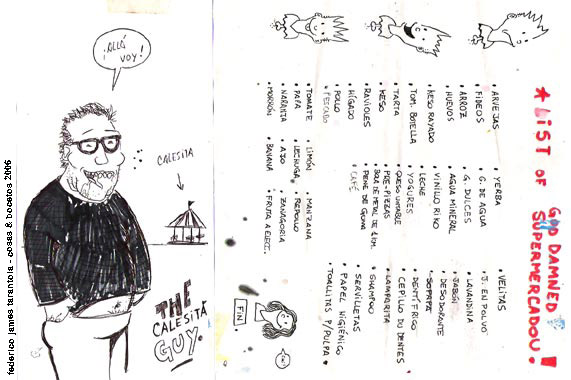 ¡ALLÁ
VOY!
CALESITA
THE
CALESITA
GUY.
federico james tarantola - cosas & bocetos 2006
* LIST OF GOD DAMNED
SUPERMERCADOU!
• ARVEJAS
• FIDEOS
• ARROZ
• HUEVOS
• QUESO RAYADO
• TOM. BOTELLA
• TARTA
• QUESO
• RAVIOLES
• HÍGADO
• POLLO
• PESCADO
• TOMATE
• PAPA
• NARANJA
• MORRÓN
• YERBA
• G. DE AGUA
• G. DULCES
• AGUA MINERAL
• VINILLO RIKO
• LECHE
• YOGURES
• QUESO UNTABLE
• PRE-PIZZAS
• BOLA DE METAL DE 1 KM.
• PIENE DE GOMA
• CAFÉ
• LIMÓN
• LECHUGA
• AJO
• BANANA
• VELITAS
• J. EN POLVO
• LAVANDINA
• JABÓN
• DESODORANTE
• SOPAPA
• DENTÍFRIGO
• CEPILLO DU DENTES
• LAMPARITA
• SHAMPOO
• SERVILLETAS
• PAPEL HIGIÉNICO
• TOALLINS P/PULPA
• MANZANA
• REPOLLO
• ZANAGORIA
• FRUTA A ELECC.
FIN